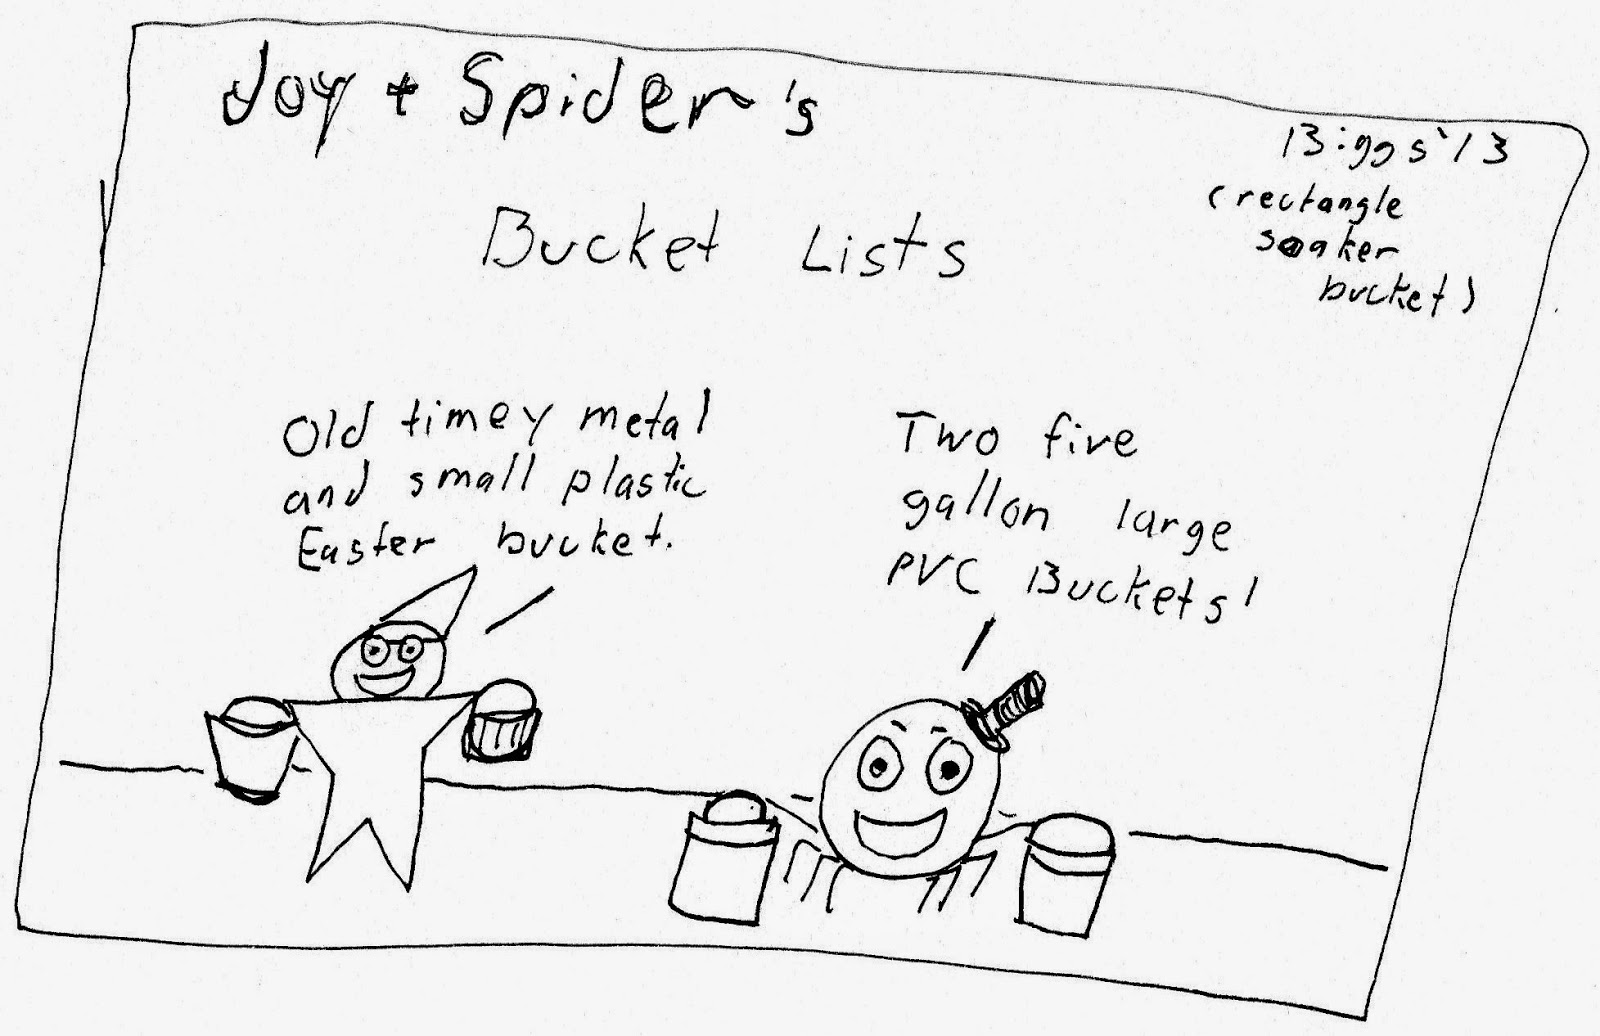 Joy + Spider's
Biggs '13
(rectangle
soaker
bucket)
Bucket Lists
Old timey metal
and small plastic
Easter bucket.
Two five
gallon large
PVC Buckets!